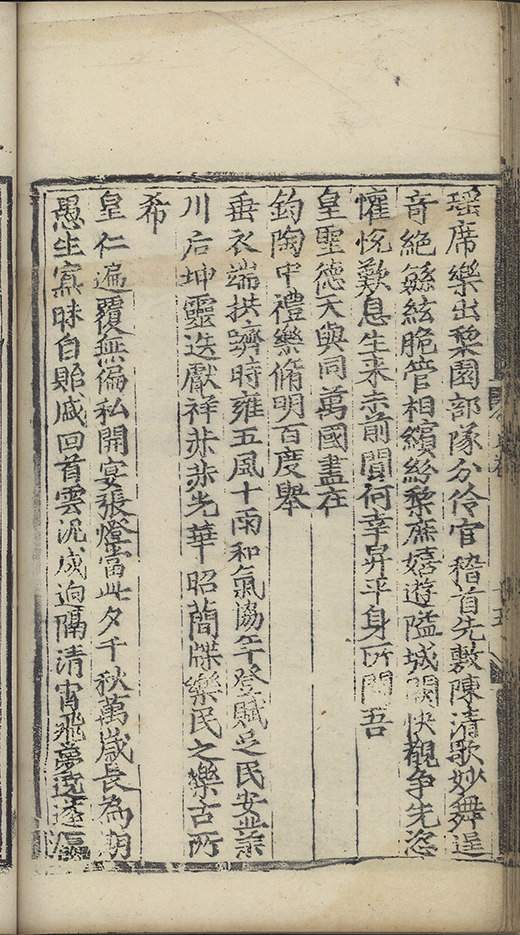 瑶席樂出梨園部隊分伶官稽首先敷陳清歌妙舞逞
奇絶繁絃脆管相繽紛黎庶嬉遊隘城闕快觀争先恣
懽悅歎息生来未前聞何幸昇平身所閱吾
皇聖德天與同萬國盡在
鈞陶中禮樂脩明百度舉
垂衣端拱躋時雍五風十雨和氣協年登賦足民安業
川后坤靈迭獻祥赫赫光華昭簡牒樂民之樂古所
希
皇仁遍覆無徧私開宴張燈當此夕千秋萬歲長為期
愚生寡昧自貽慼回首雲泥成逈隔清宵飛夢遶蓬瀛